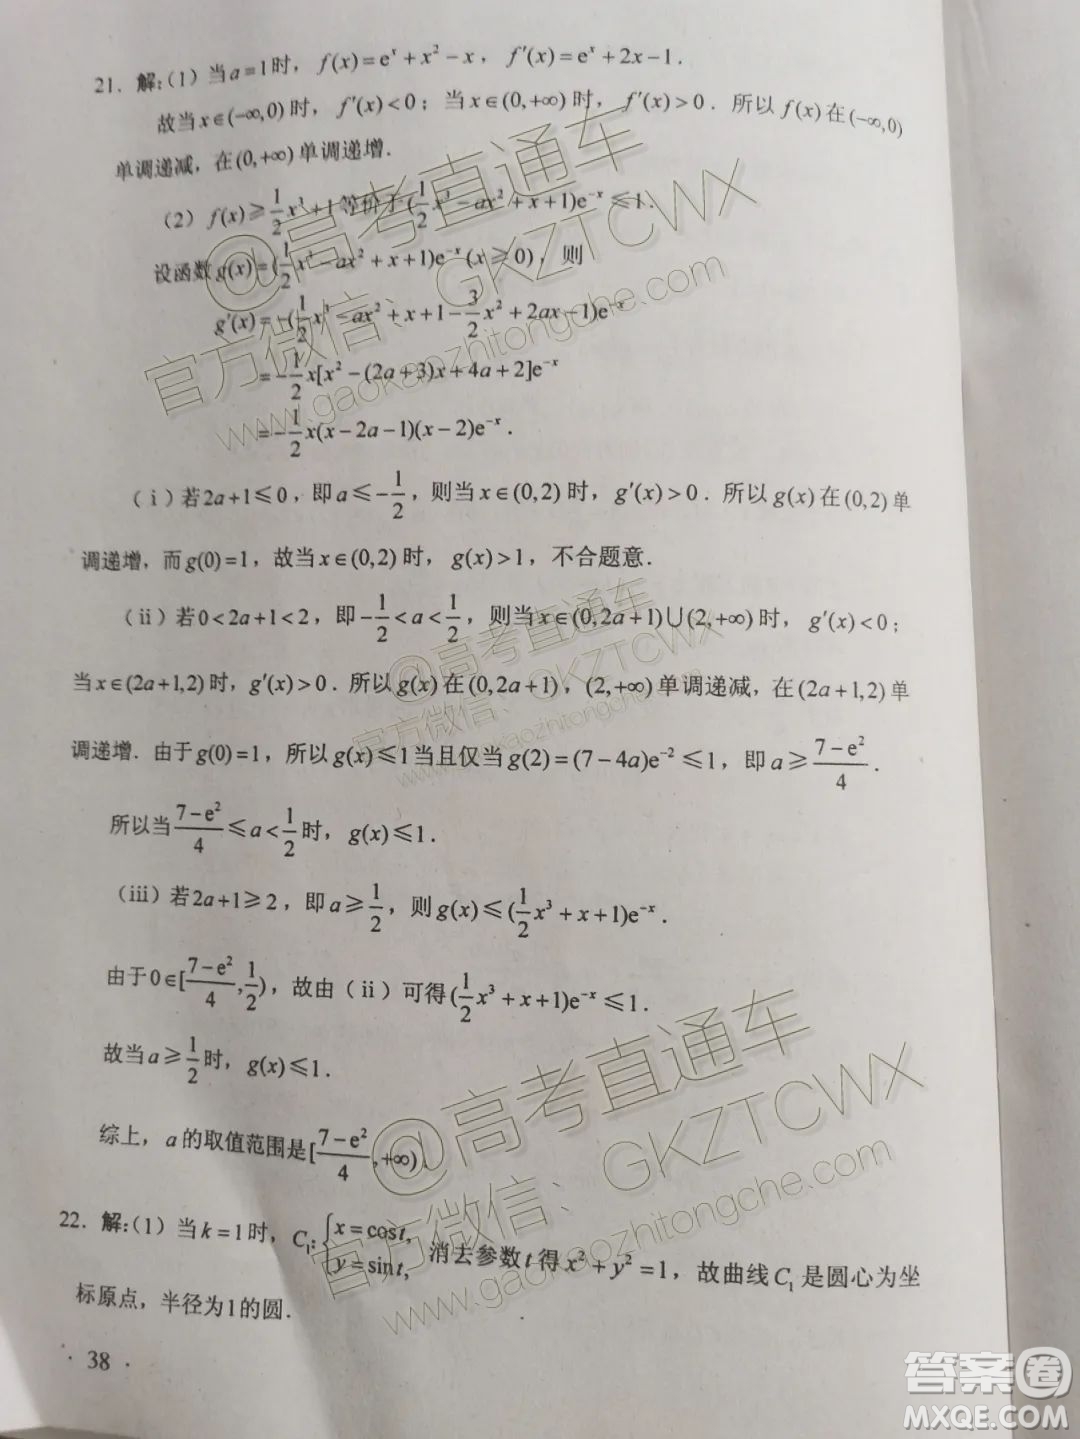 21. 解：(1) 当a=1时，f(x)=eˣ+x²-x，f′(x)=eˣ+2x-1.
故当x∈(-∞,0)时，f′(x)<0；当x∈(0,+∞)时，f′(x)>0. 所以f(x)在(-∞,0)
单调递减，在(0,+∞)单调递增.
(2) f(x)≥1/2x³+1等价于(1/2x³-ax²+x+1)e⁻ˣ≤1.
设函数g(x)=(1/2x³-ax²+x+1)e⁻ˣ(x≥0)，则
g′(x)=-(1/2x³-ax²+x+1-3/2x²+2ax-1)e⁻ˣ
=-1/2x[x²-(2a+3)x+4a+2]e⁻ˣ
=-1/2x(x-2a-1)(x-2)e⁻ˣ.
(i) 若2a+1≤0，即a≤-1/2，则当x∈(0,2)时，g′(x)>0. 所以g(x)在(0,2)单
调递增，而g(0)=1，故当x∈(0,2)时，g(x)>1，不合题意.
(ii) 若0<2a+1<2，即-1/2<a<1/2，则当x∈(0,2a+1)∪(2,+∞)时，g′(x)<0；
当x∈(2a+1,2)时，g′(x)>0. 所以g(x)在(0,2a+1)，(2,+∞)单调递减，在(2a+1,2)单
调递增. 由于g(0)=1，所以g(x)≤1当且仅当g(2)=(7-4a)e⁻²≤1，即a≥(7-e²)/4.
所以当(7-e²)/4≤a<1/2时，g(x)≤1.
(iii) 若2a+1≥2，即a≥1/2，则g(x)≤(1/2x³+x+1)e⁻ˣ.
由于0∈[(7-e²)/4,1/2)，故由(ii)可得(1/2x³+x+1)e⁻ˣ≤1.
故当a≥1/2时，g(x)≤1.
综上，a的取值范围是[(7-e²)/4,+∞).
22. 解：(1) 当k=1时，C₁:{x=cost, y=sint, 消去参数t得x²+y²=1，故曲线C₁是圆心为坐
标原点，半径为1的圆.
· 38 ·
@高考直通车
官方微信：GKZTCWX
www.gaokaozhitongche.com
@高考直通车
官方微信：GKZTCWX
www.gaokaozhitongche.com
@高考直通车
官方微信：GKZTCWX
www.gaokaozhitongche.com
答案卷
MXQE.COM